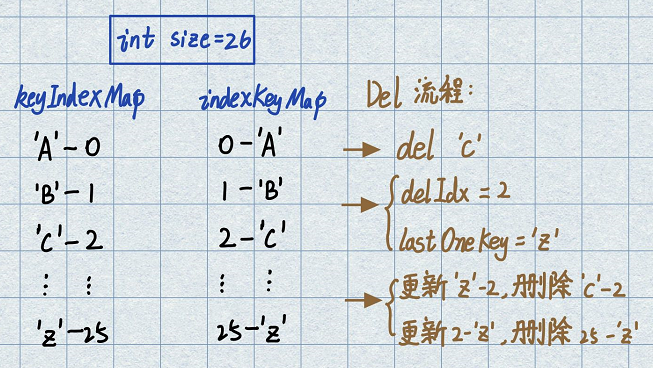 int size=26
keyIndexMap
'A'-0
'B'-1
'C'-2
⋮ ⋮
'Z'-25
indexKeyMap
0-'A'
1-'B'
2-'C'
⋮ ⋮
25-'Z'
Del 流程:
→ del 'C'
→ delIdx=2
lastOneKey='Z'
→ 更新'Z'-2,删除'C'-2
更新2-'Z',删除25-'Z'